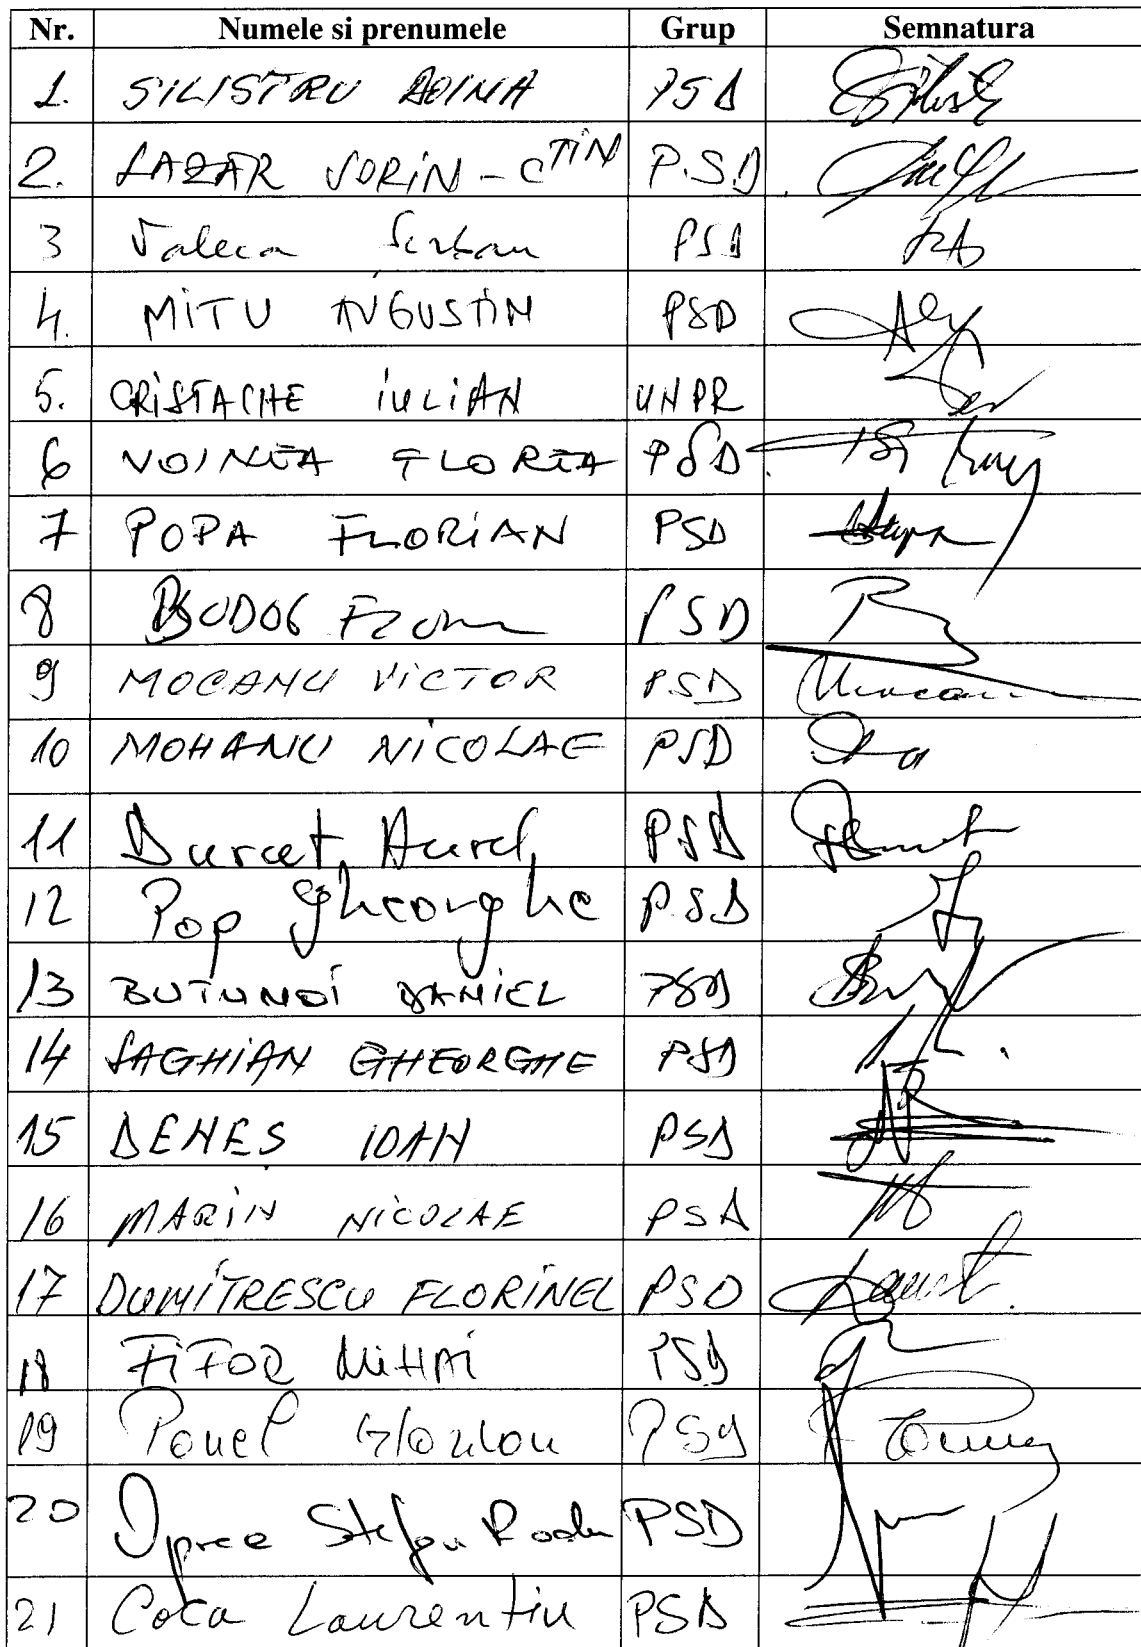 Nr. Numele si prenumele Grup Semnatura
1. SILISTRU DOINA PSD
2. LAZAR SORIN - CTIN P.S.D
3 Valeca Serban PSD
4. MITU AUGUSTIN PSD
5. CRISTACHE IULIAN UNPR
6 VOINEA FLOREA PSD
7 POPA FLORIAN PSD
8 PSD
9 MOCANU VICTOR PSD
10 MOHANU NICOLAE PSD
11 Durcet, Aurel PSD
12 Pop Gheorghe PSD
13 BUTUNOI DANIEL PSD
14 SAGHIAN GHEORGHE PSD
15 DENES IOAN PSD
16 MARIN NICOLAE PSD
17 DUMITRESCU FLORINEL PSD
18 FIFOR MIHAI PSD
19 PSD
20 Oprea Stefan Radu PSD
21 Coca Laurentiu PSD